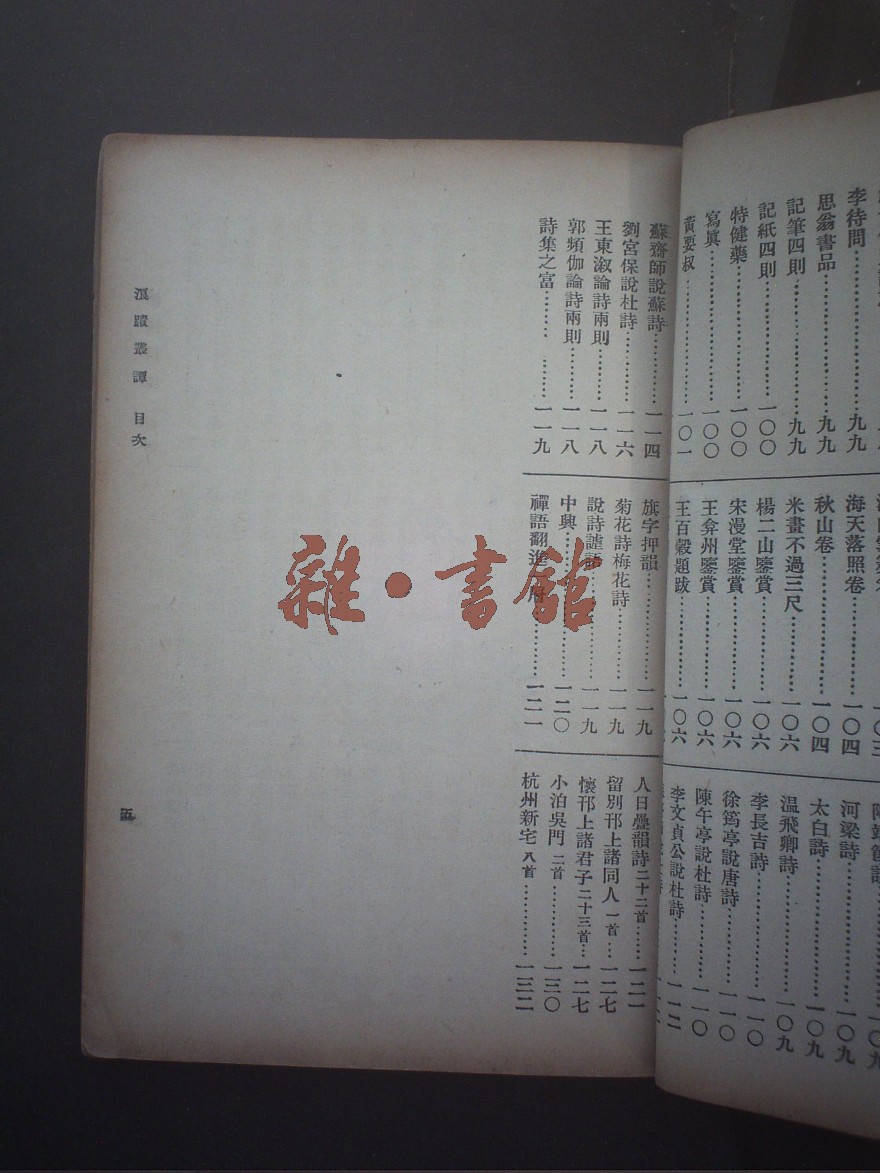 李待問……………九九
思翁書品…………九九
記筆四則…………九九
記紙四則…………一〇〇
特健藥……………一〇〇
寫眞………………一〇〇
黃要叔……………一〇一
海天落照卷………一〇四
秋山卷……………一〇四
米畫不過三尺……一〇六
楊二山鑒賞………一〇六
宋漫堂鑒賞………一〇六
王弇州鑒賞………一〇六
王百穀題跋………一〇六
河梁詩……………一〇九
太白詩……………一〇九
溫飛卿詩…………一〇九
李長吉詩…………一一〇
徐筠亭說唐詩……一一〇
陳午亭說杜詩……一一〇
李文貞公說杜詩…一一二
蘇齋師說蘇詩……一一四
劉宮保說杜詩……一一六
王東漵論詩兩則…一一八
郭頻伽論詩兩則…一一八
詩集之富…………一一九
旗字押韻…………一一九
菊花詩梅花詩……一一九
說詩謔語…………一一九
中興………………一二〇
禪語翻進…………一二一
人日疊韻詩二十二首……一二一
留別邗上諸同人一首……一二七
懷邗上諸君子二十三首…一二七
小泊吳門二首……一三〇
杭州新宅八首……一三二
浪蹟叢譚 目次
五
雜·書館